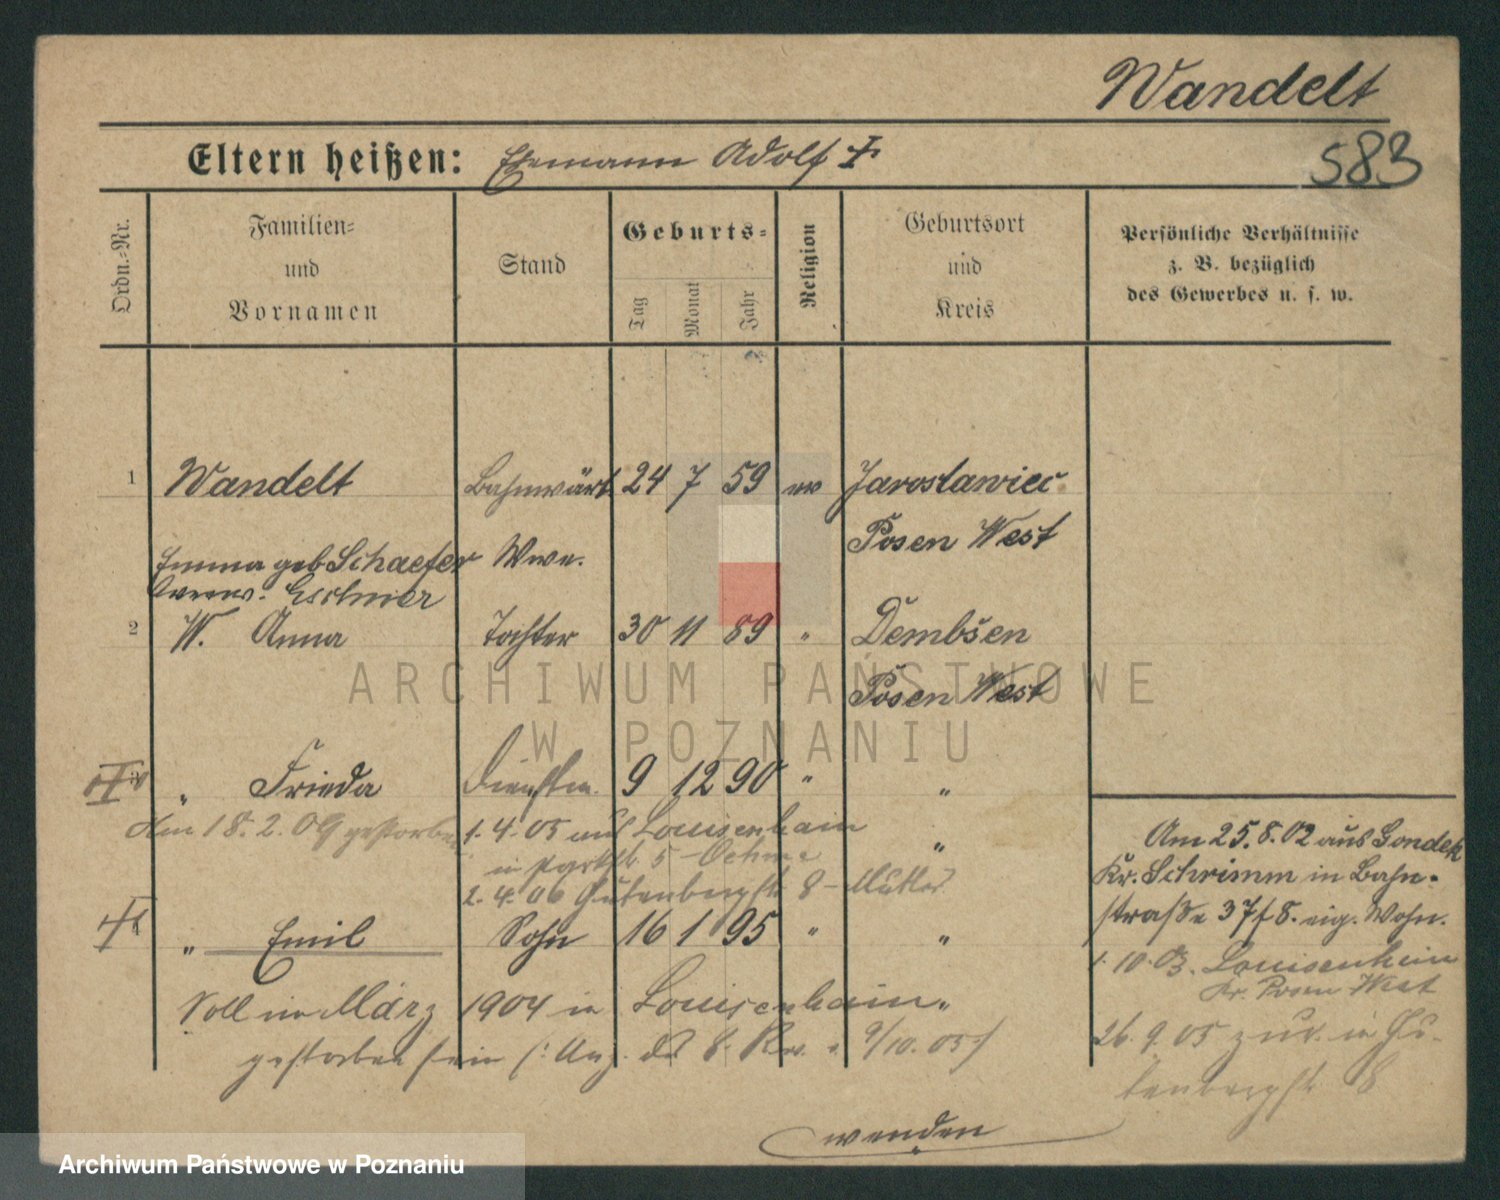 Wandelt
Eltern heißen: Ehemann Adolf †
583
Ordn.-Nr.
Familien-
und
Vornamen
Stand
Geburts-
Tag
Monat
Jahr
Religion
Geburtsort
und
Kreis
Persönliche Verhältnisse
z. B. bezüglich
des Gewerbes u. s. w.
1 Wandelt Bahnwärt. 24 7 59 ev Jaroslawiec
Posen West
Emma geb Schaefer Wwe.
Eschner
2 W. Anna Tochter 30 11 89 " Dembsen
Posen West
" Frieda 9 12 90 " "
Am 18. 2. 09 gestorben 1. 4. 05 auf Louisenhain "
in Parkstr 5
2. 4. 06 Gutenbergstr 8 - Mutter
4 " Emil Sohn 16 1 95 " "
Soll im März 1904 in Louisenhain
gestorben sein (: Anz. d. 8. Rev. v. 9/10. 05 :)
Am 25. 8. 02 aus Gondek
Kr. Schrimm in Bahn-
straße 37 f 8. eig. Wohn.
1. 10. 03. Louisenhein
Kr. Posen West
26. 9. 05 zur. in Gu-
tenbergstr 8
wenden
ARCHIWUM PAŃSTWOWE
W POZNANIU
Archiwum Państwowe w Poznaniu